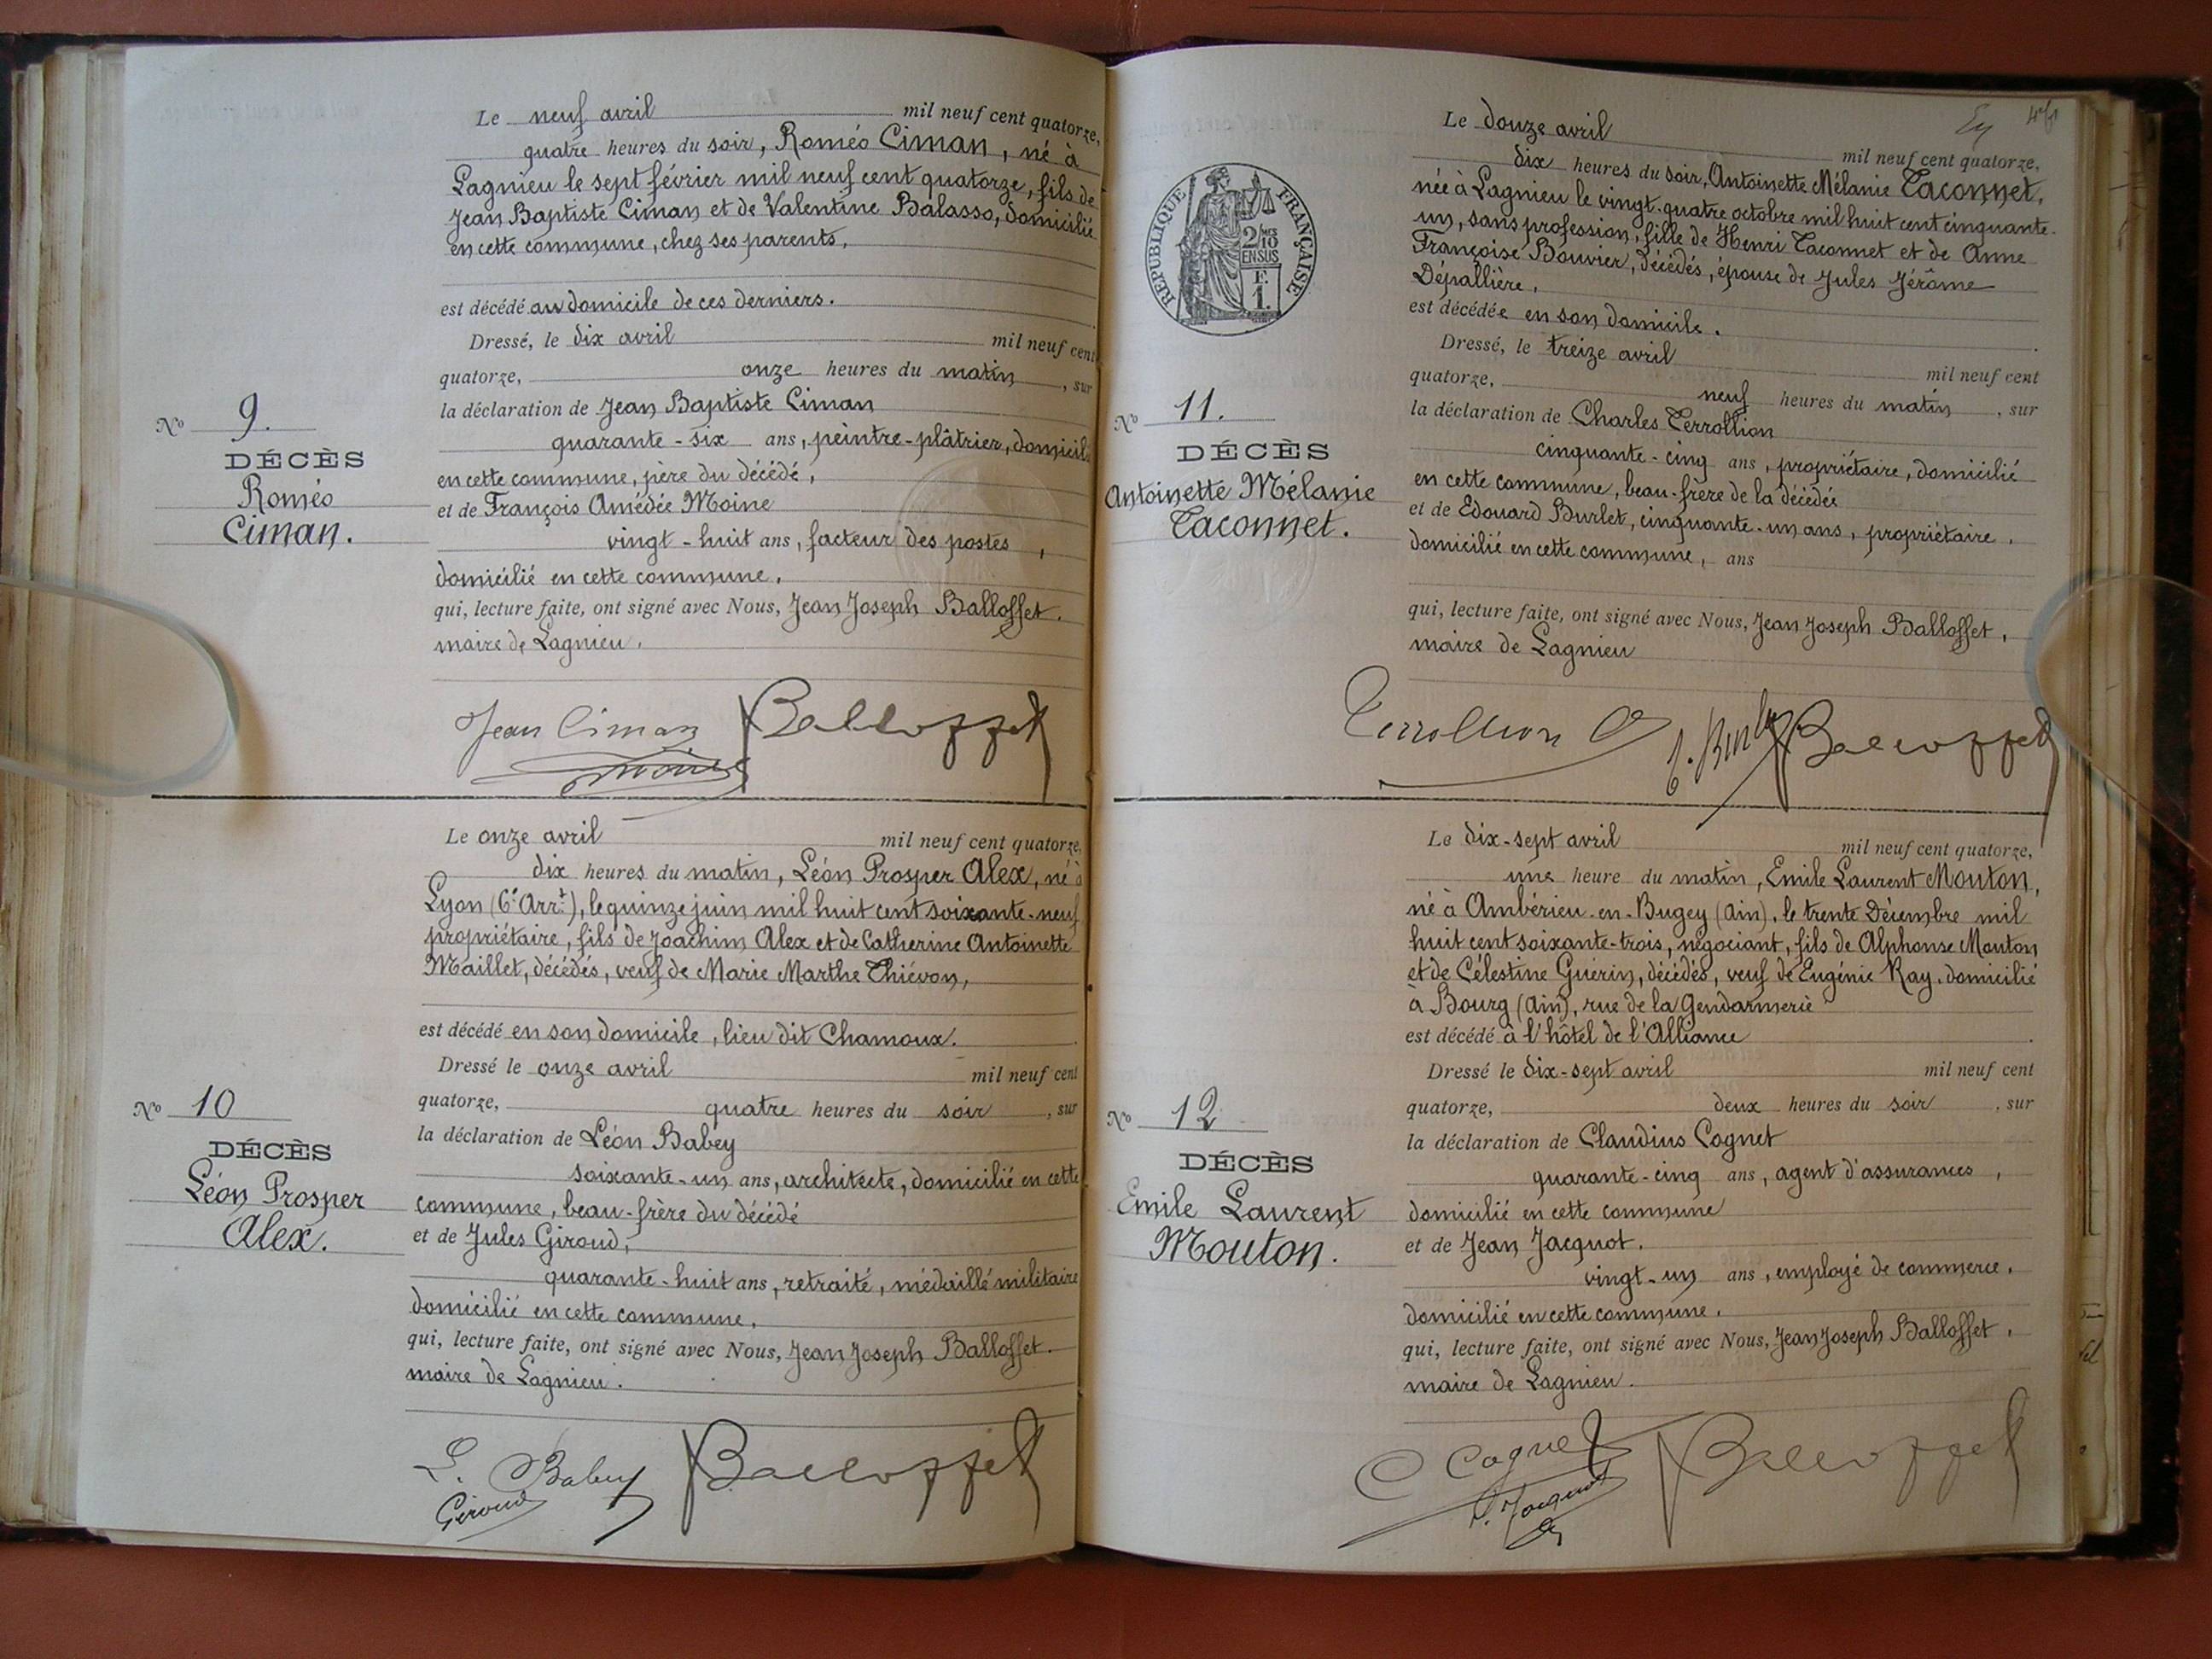 Le neuf avril mil neuf cent quatorze,
quatre heures du soir, Roméo Ciman, né à
Lagnieu le sept février mil neuf cent quatorze, fils de
Jean Baptiste Ciman et de Valentine Balasso, domicilié
en cette commune, chez ses parents,
est décédé au domicile de ces derniers.
Dressé, le dix avril mil neuf cent
quatorze, onze heures du matin, sur
la déclaration de Jean Baptiste Ciman
quarante-six ans, peintre-plâtrier, domicilié
en cette commune, père du décédé,
et de François Amédée Moine
vingt-huit ans, facteur des postes,
domicilié en cette commune,
qui, lecture faite, ont signé avec Nous, Jean Joseph Balloffet.
maire de Lagnieu.
Jean Ciman Balloffet
Moine
No 9.
DÉCÈS
Roméo
Ciman.
Le onze avril mil neuf cent quatorze,
dix heures du matin, Léon Prosper Alex, né à
Lyon (6e Arrt), le quinze juin mil huit cent soixante-neuf
propriétaire, fils de Joachim Alex et de Catherine Antoinette
Maillet, décédés, veuf de Marie Marthe Thiévon,
est décédé en son domicile, lieu dit Chamoux.
Dressé le onze avril mil neuf cent
quatorze, quatre heures du soir, sur
la déclaration de Léon Babey
soixante-un ans, architecte, domicilié en cette
commune, beau-frère du décédé
et de Jules Giroud,
quarante-huit ans, retraité, médaillé militaire
domicilié en cette commune,
qui, lecture faite, ont signé avec Nous, Jean Joseph Balloffet.
maire de Lagnieu.
L. Babey Balloffet
Giroud
No 10
DÉCÈS
Léon Prosper
Alex.
RÉPUBLIQUE FRANÇAISE
2/10
EN SUS
F.
1.
Le douze avril mil neuf cent quatorze,
dix heures du soir, Antoinette Mélanie Taconnet,
née à Lagnieu le vingt-quatre octobre mil huit cent cinquante-
un, sans profession, fille de Henri Taconnet et de Anne
Françoise Bouvier, décédés, épouse de Jules Jérôme
Dépallière,
est décédée en son domicile.
Dressé, le treize avril mil neuf cent
quatorze, neuf heures du matin, sur
la déclaration de Charles Terrollion
cinquante-cinq ans, propriétaire, domicilié
en cette commune, beau-frère de la décédée
et de Edouard Burlet, cinquante-un ans, propriétaire.
domicilié en cette commune, ans
qui, lecture faite, ont signé avec Nous, Jean Joseph Balloffet,
maire de Lagnieu
Terrollion C E. Burlet Balloffet
No 11.
DÉCÈS
Antoinette Mélanie
Taconnet.
Le dix-sept avril mil neuf cent quatorze,
une heure du matin, Emile Laurent Mouton,
né à Ambérieu-en-Bugey (Ain), le trente Décembre mil
huit cent soixante-trois, négociant, fils de Alphonse Mouton
et de Célestine Guérin, décédés, veuf de Eugénie Ray, domicilié
à Bourg (Ain), rue de la Gendarmerie
est décédé à l'hôtel de l'Alliance
Dressé le dix-sept avril mil neuf cent
quatorze, deux heures du soir, sur
la déclaration de Claudius Cognet
quarante-cinq ans, agent d'assurances,
domicilié en cette commune
et de Jean Jacquot.
vingt-un ans, employé de commerce,
domicilié en cette commune.
qui, lecture faite, ont signé avec Nous, Jean Joseph Balloffet,
maire de Lagnieu.
C Cognet Balloffet
J. Jacquot
No 12
DÉCÈS
Emile Laurent
Mouton.